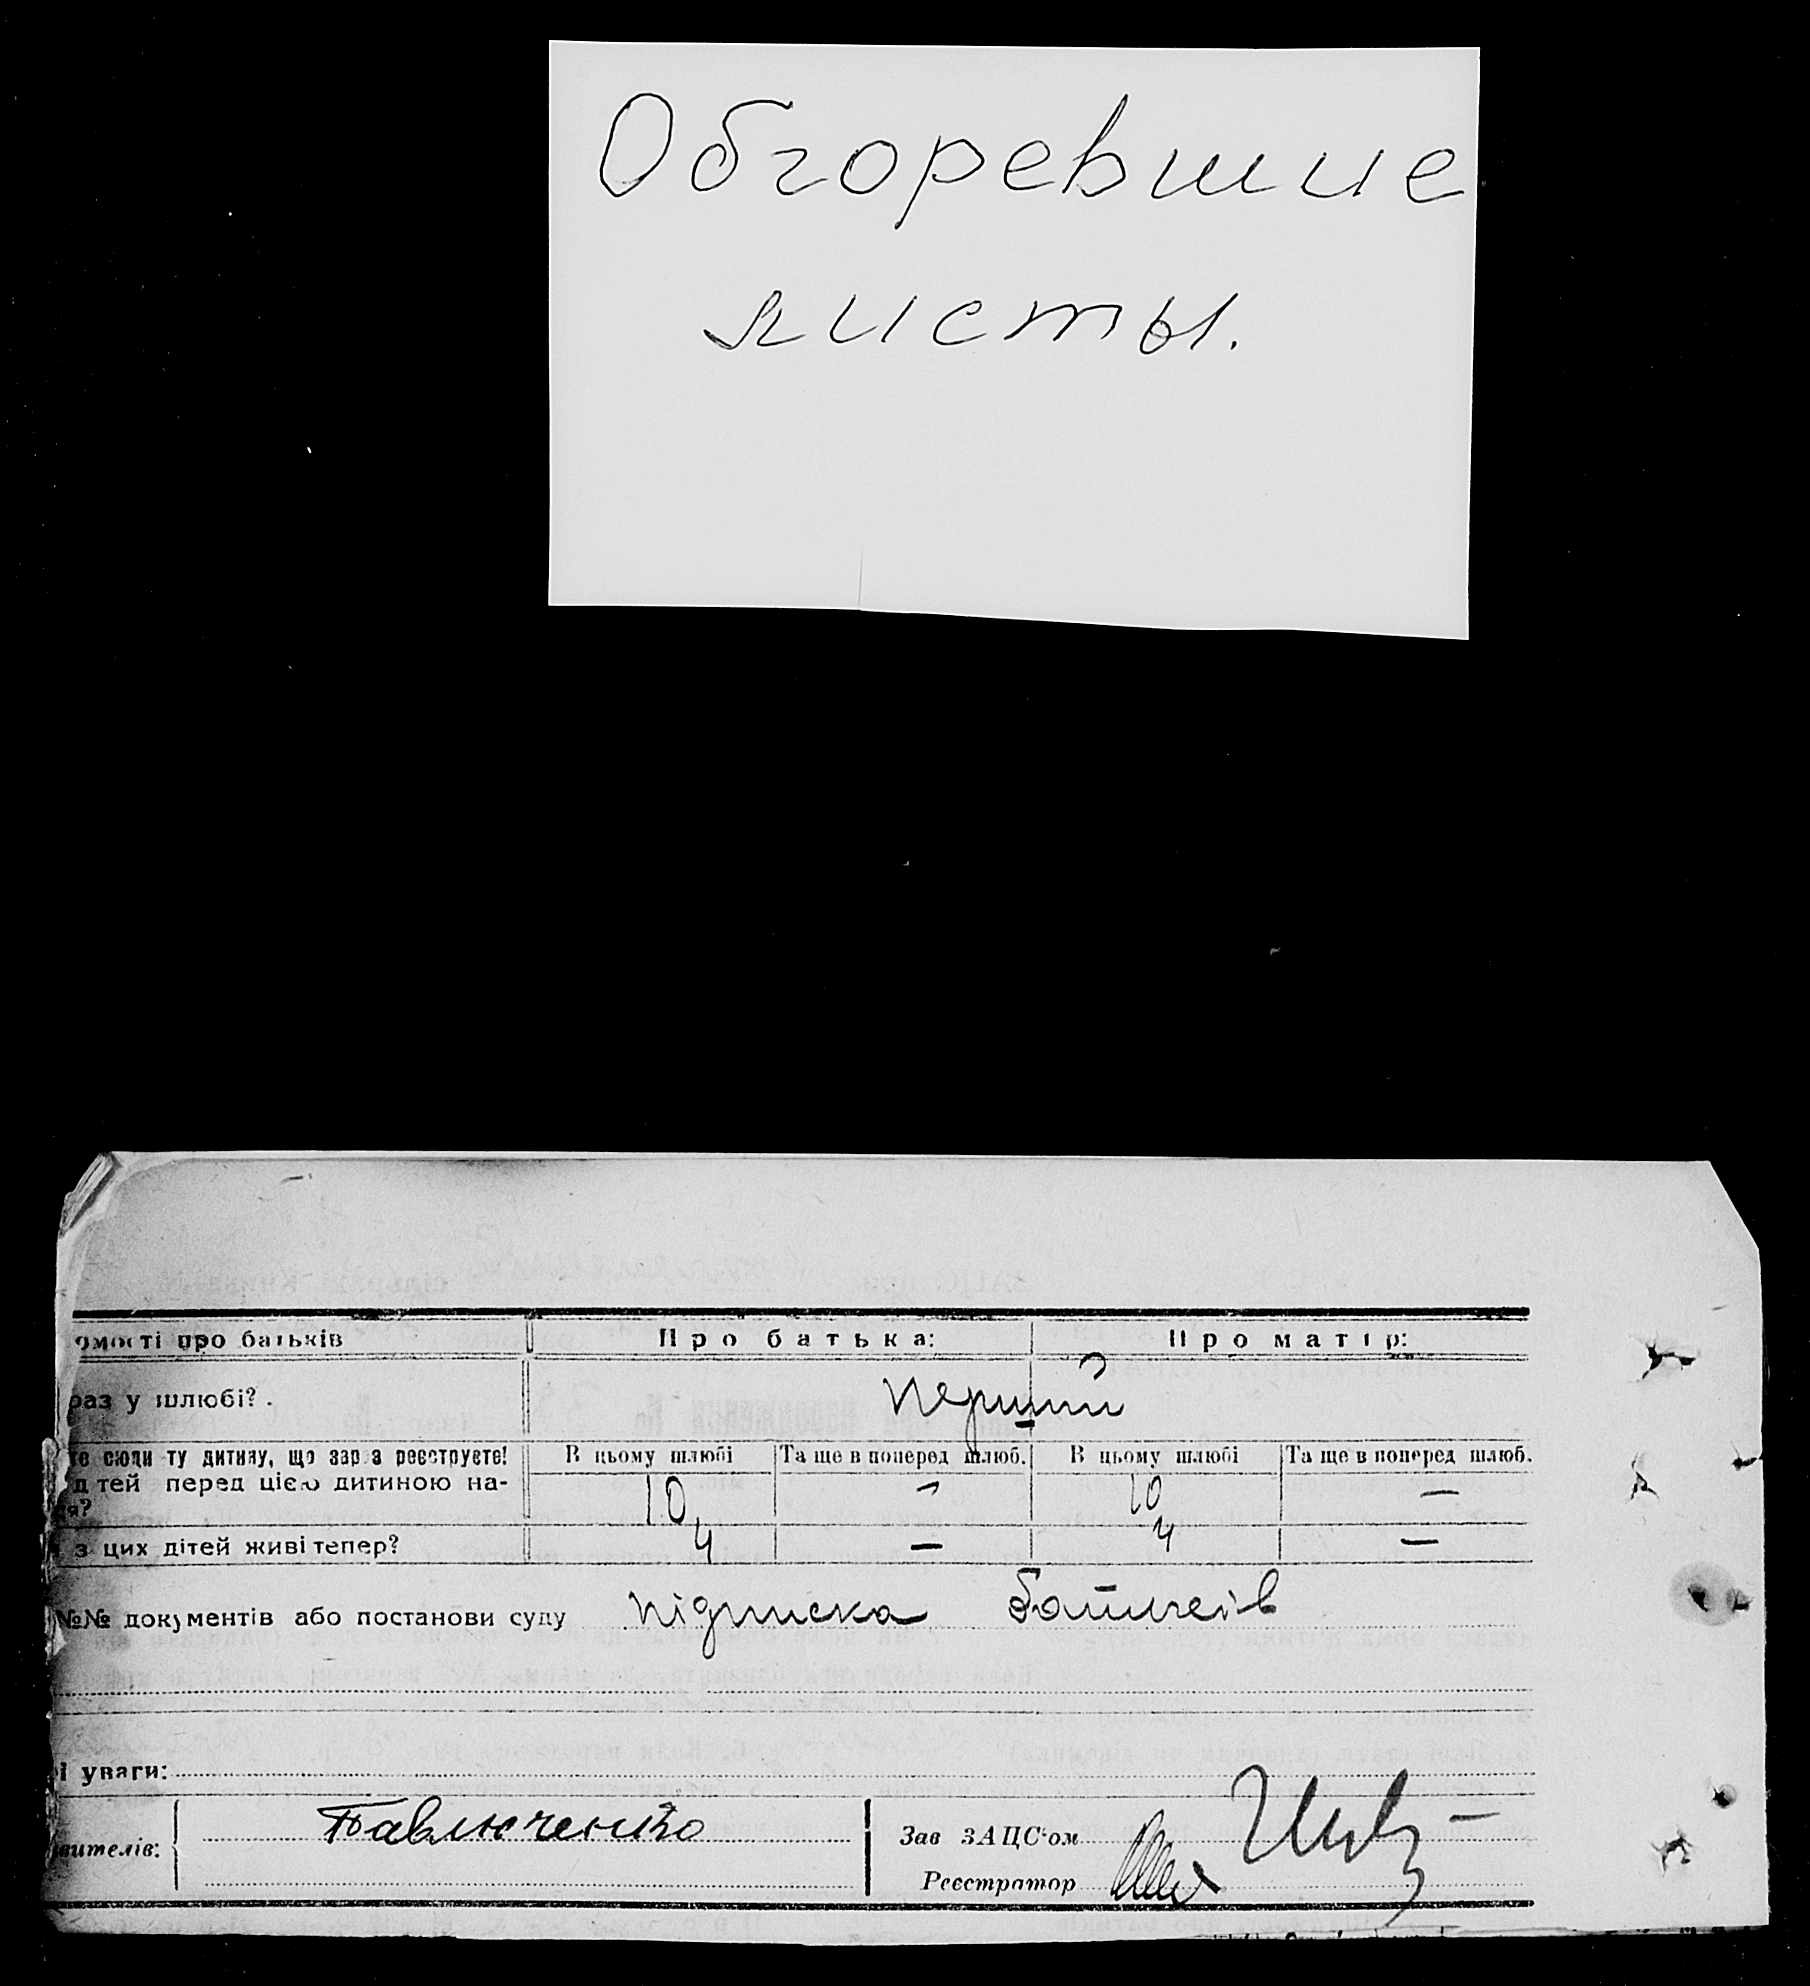 Обгоревшие
листы.
омості про батьків Про батька: Про матір:
раз у шлюбі? . перший
те сюди ту дитину, що зараз реєструєте! В цьому шлюбі Та ще в поперед шлюб. В цьому шлюбі Та ще в поперед шлюб.
дітей перед цією дитиною на- 10 — 10 —
ся?
з цих дітей живі тепер? 4 — 4 —
№№ документів або постанови суду підписка батьків
і уваги:
вителів: Павлюченко Зав ЗАЦС'ом
Реєстратор